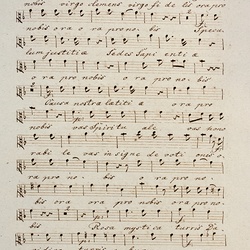 nobis virgo clemens virgo fide lis ora pro
nobis ora pro no bis Specu
lum justitiæ Sedes Sapi entiæ
o ra pro nobis o ra pro no bis
Causa nostra lætitiæ o ra pro
nobis vas Spiritu ale vas hono
rabi le vas in signe de voti onis o
ra pro no bis o ra pro no
bis ora pro nobis o ra pro no
bis Rosa mystica turris Da